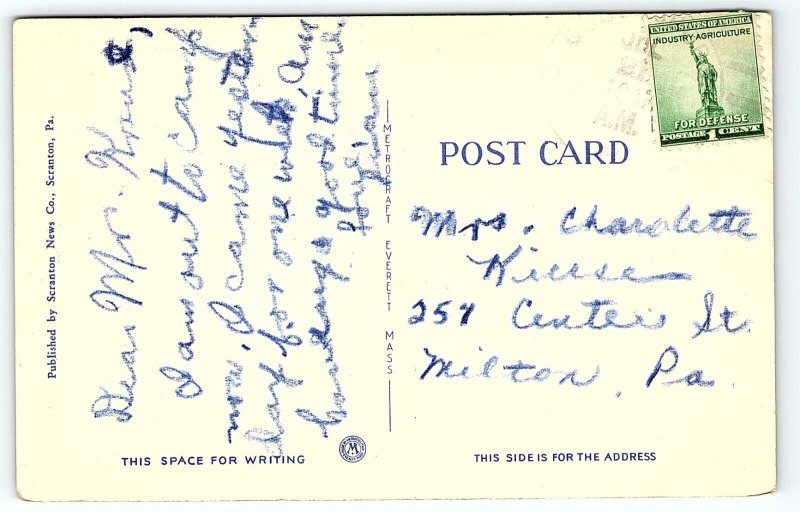 Published by Scranton News Co., Scranton, Pa.
Dear Mrs.
I am out to camp
now. I came yester
day for one week, am
having a good time.
METROCRAFT EVERETT MASS
POST CARD
UNITED STATES OF AMERICA
INDUSTRY-AGRICULTURE
FOR DEFENSE
POSTAGE 1 CENT
A.M.
Mrs. Charolette
257 Center St.
Milton, Pa.
THIS SPACE FOR WRITING
THIS SIDE IS FOR THE ADDRESS